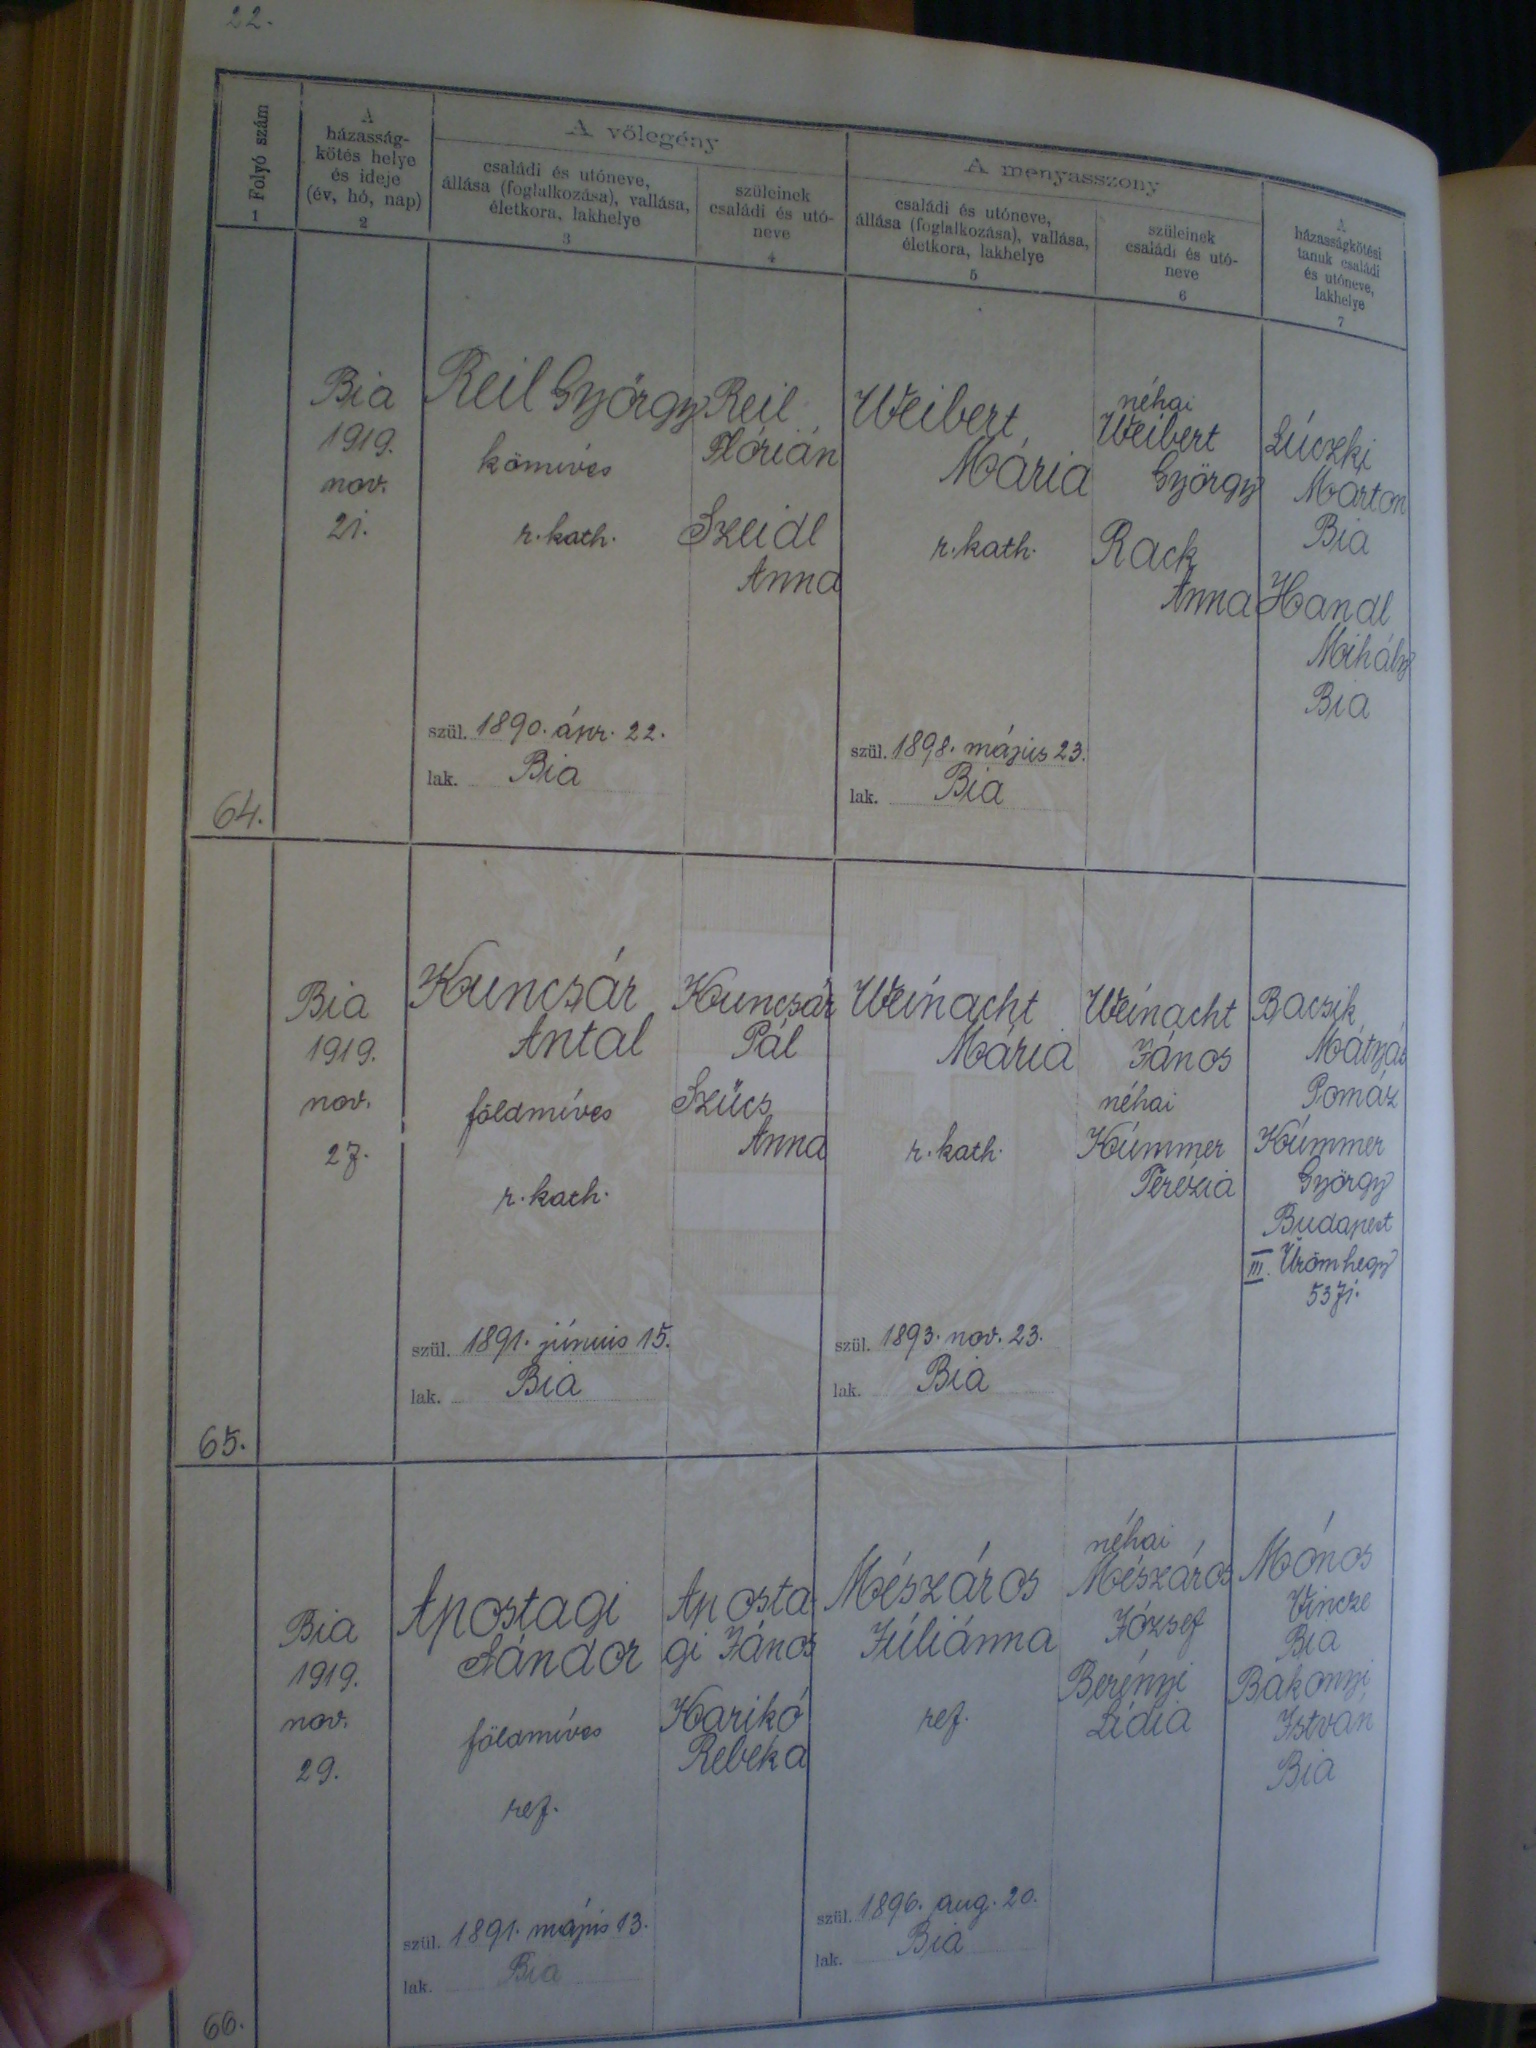 22.
Folyó szám
1
A
házasság-
kötés helye
és ideje
(év, hó, nap)
2
A vőlegény
családi és utóneve,
állása (foglalkozása), vallása,
életkora, lakhelye
3
szüleinek
családi és utó-
neve
4
A menyasszony
családi és utóneve,
állása (foglalkozása), vallása,
életkora, lakhelye
5
szüleinek
családi és utó-
neve
6
A
házasságkötési
tanuk családi
és utóneve,
lakhelye
7
64.
Bia
1919.
nov.
21.
Reil György
kőmíves
r. kath.
szül. 1890. ápr. 22.
lak. Bia
Reil
Flórián
Szeidl
Anna
Weibert
Mária
r. kath.
szül. 1898. május 23.
lak. Bia
néhai
Weibert
György
Rack
Anna
Lúczki
Márton
Bia
Handl
Mihály
Bia
65.
Bia
1919.
nov.
27.
Kuncsár
Antal
földmíves
r. kath.
szül. 1891. június 15.
lak. Bia
Kuncsár
Pál
Szűcs
Anna
Weinacht
Mária
r. kath.
szül. 1893. nov. 23.
lak. Bia
Weinacht
János
néhai
Kümmer
Terézia
Bacsik
Mátyás
Pomáz
Kümmer
György
Budapest
III. Ürömhegy
5371.
66.
Bia
1919.
nov.
29.
Apostagi
Sándor
földmíves
ref.
szül. 1891. május 13.
lak. Bia
Aposta-
gi János
Karikó
Rebeka
Mészáros
Júliánna
ref.
szül. 1896. aug. 20.
lak. Bia
néhai
Mészáros
József
Berényi
Lídia
Mónos
Vincze
Bia
Bakonyi
István
Bia